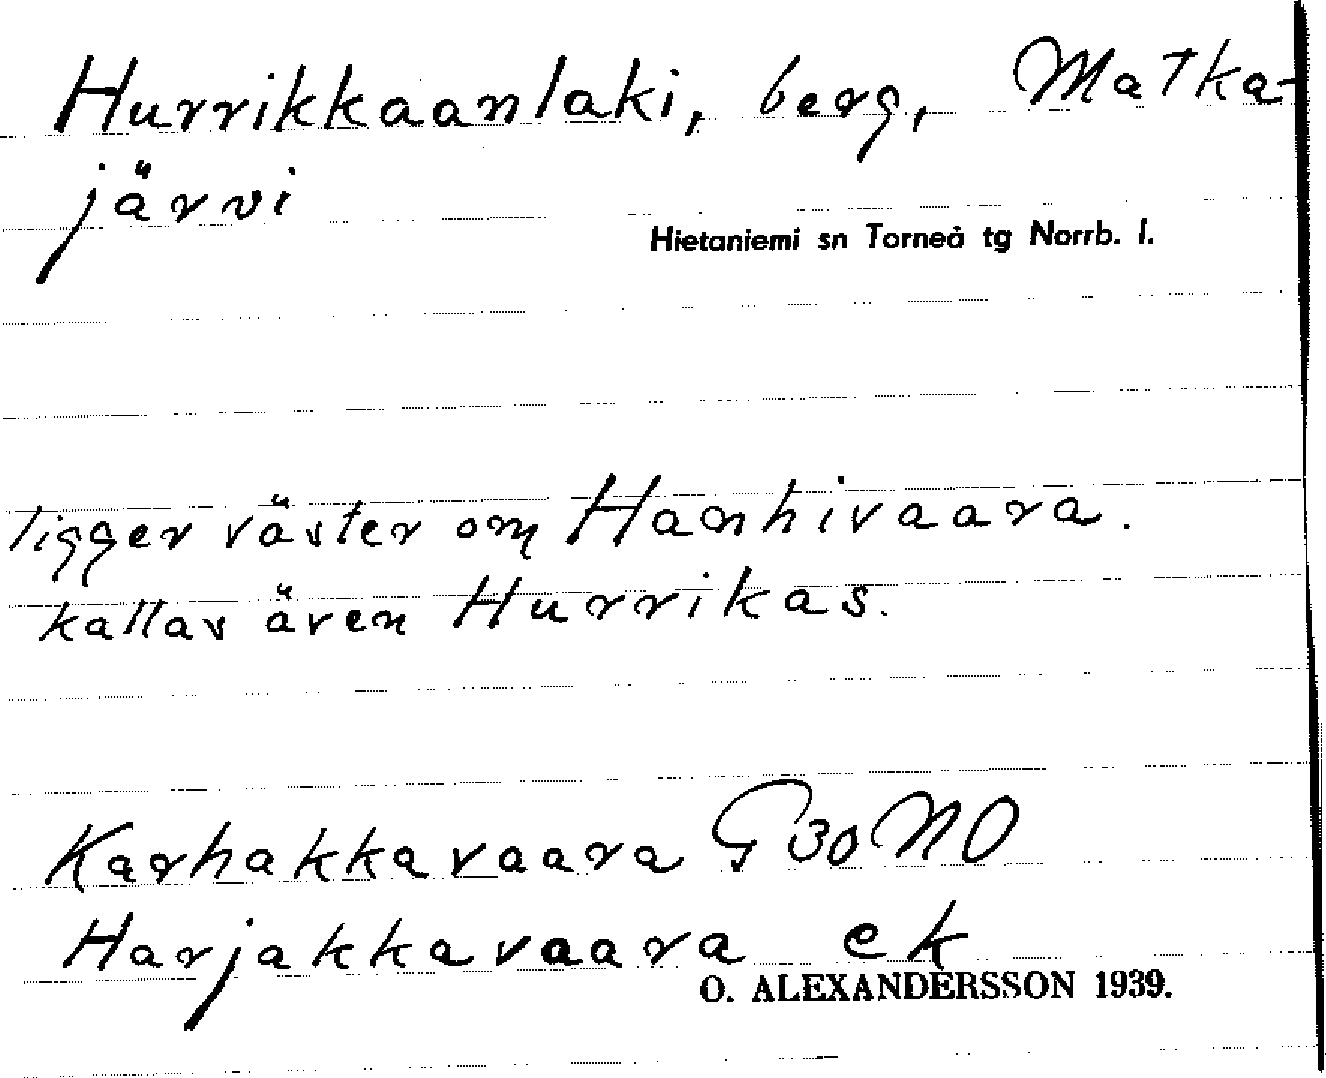 Hurrikkaanlaki, berg, Matka-
järvi
Hietaniemi sn Torneå tg Norrb. l.
ligger väster om Hanhivaara.
kallas även Hurrikas.
Karhakkavaara G 30 NO
Harjakkavaara ek
O. ALEXANDERSSON 1939.